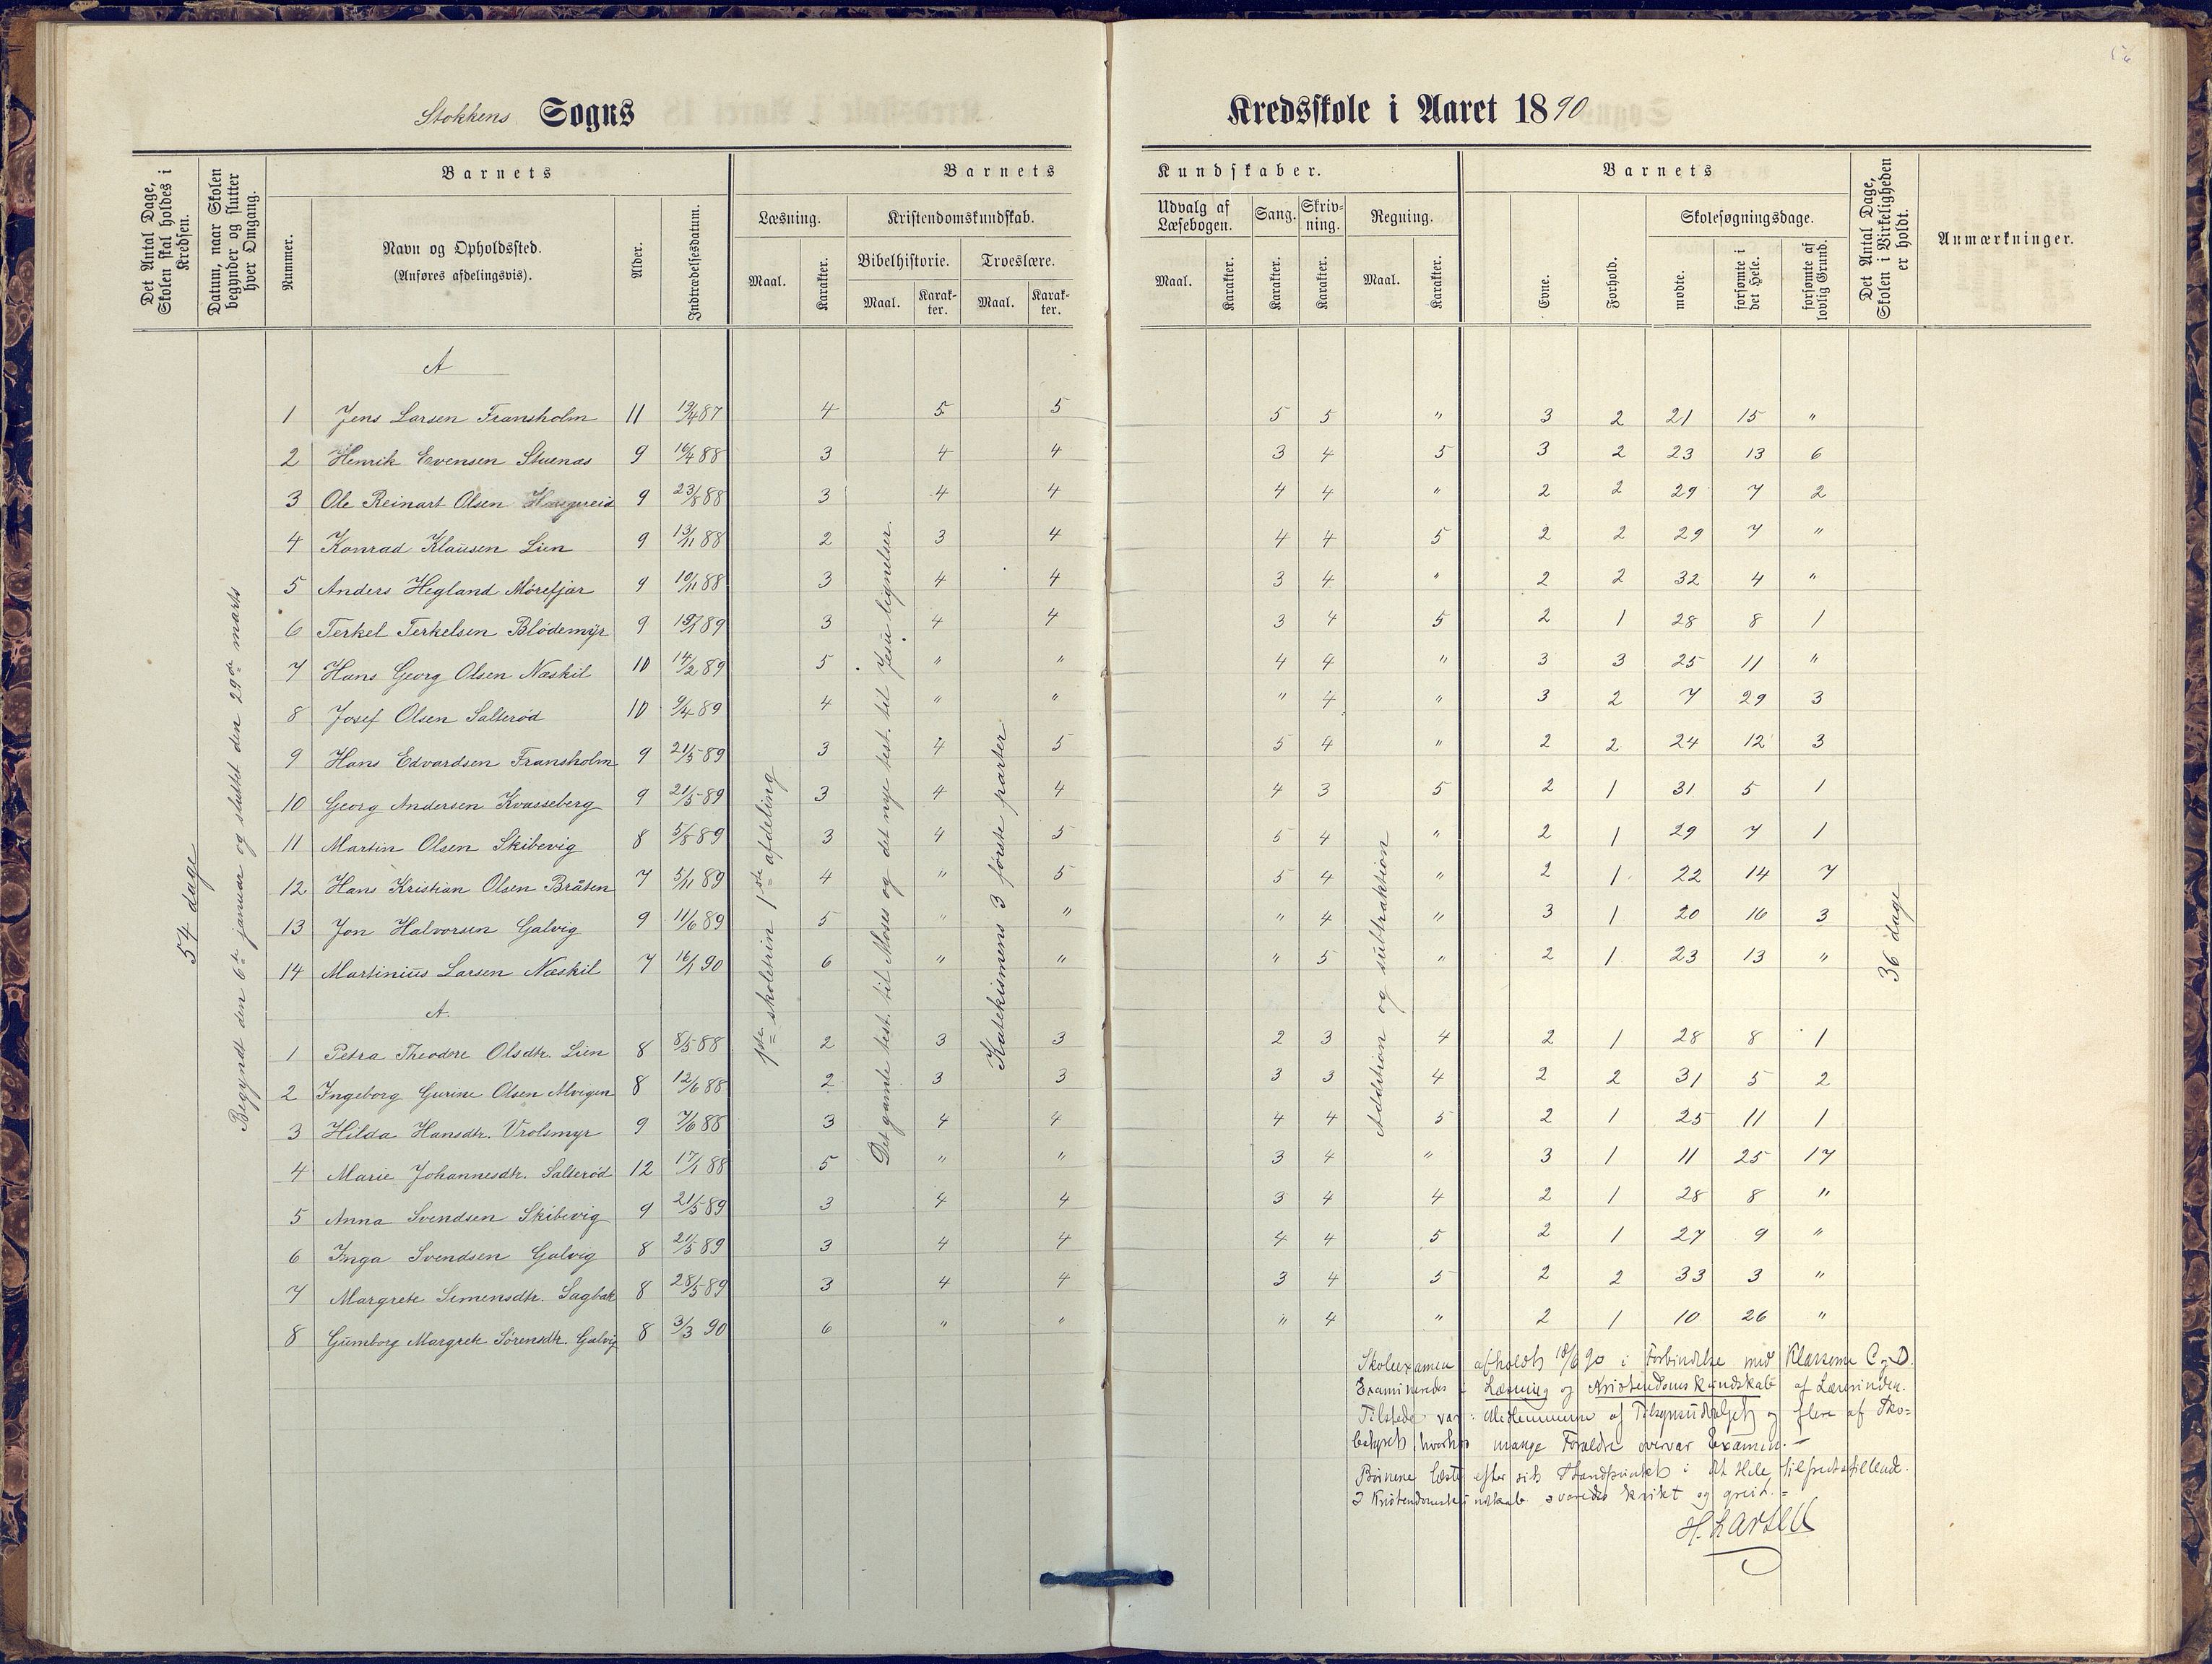 Stokkens Sogns
Kredsskole i Aaret 1890
Det Antal Dage, Skolen skal holdes i Kredsen.
Datum, naar Skolen begynder og slutter hver Omgang.
Barnets
Nummer.
Navn og Opholdssted.
(Anføres afdelingsvis).
Alder.
Indtrædelsesdatum.
Barnets Kundskaber.
Læsning.
Maal.
Karakter.
Kristendomskundskab.
Bibelhistorie.
Maal.
Karakter.
Troeslære.
Maal.
Karakter.
Udvalg af Læsebogen.
Maal.
Karakter.
Sang.
Karakter.
Skrivning.
Karakter.
Regning.
Maal.
Karakter.
Barnets
Evne.
Forhold.
Skolesøgningsdage.
mødte.
forsømte i det Hele.
forsømte af lovlig Grund.
Det Antal Dage, Skolen i Virkeligheden er holdt.
Anmærkninger.
54 dage
Begyndt den 6te januar og sluttet den 29de marts
1ste skoletrin 1ste afdeling
Det gamle test. til Moses og det nye test. til Jesu lignelser.
Katekismens 3 første parter
Addition og subtraktion
36 dage
A
1 Jens Larsen Fransholm 11 19/4 87 4 5 5 5 5 " 3 2 21 15 "
2 Henrik Evensen Stuenæs 9 16/4 88 3 4 4 3 4 5 3 2 23 13 6
3 Ole Reinart Olsen 9 23/8 88 3 4 4 4 4 " 2 2 29 7 2
4 Konrad Klausen Lien 9 13/11 88 2 3 4 4 4 5 2 2 29 7 "
5 Anders Hegland Mörefjær 9 10/11 88 3 4 4 3 4 " 2 2 32 4 "
6 Terkel Terkelsen Blödemyr 9 89 3 4 4 3 4 5 2 1 28 8 1
7 Hans Georg Olsen Næskil 10 14/2 89 5 " " 4 4 " 3 3 25 11 "
8 Josef Olsen Salterød 10 9/4 89 4 " " " 4 " 3 2 7 29 3
9 Hans Edvardsen Fransholm 9 21/5 89 3 4 5 5 4 " 2 2 24 12 3
10 Georg Andersen Kvasseberg 9 21/5 89 3 4 4 4 3 5 2 1 31 5 1
11 Martin Olsen Skibevig 8 5/8 89 3 4 5 5 4 " 2 1 29 7 1
12 Hans Kristian Olsen Bråten 7 5/11 89 4 " 5 5 4 " 2 1 22 14 7
13 Jon Halvorsen Galvig 9 11/6 89 5 " " " 4 " 3 1 20 16 3
14 Martinius Larsen Næskil 7 16/1 90 6 " " " 5 " 2 1 23 13 "
A.
1 Petra Theodore Olsdtr. Lien 8 8/5 88 2 3 3 2 3 4 2 1 28 8 1
2 Ingeborg Gurine Olsen Alvegen 8 12/6 88 2 3 3 3 3 4 2 2 31 5 2
3 Hilda Hansdtr. Vrolsmyr 9 7/6 88 3 4 4 4 4 5 2 1 25 11 1
4 Marie Johannesdtr. Salterød 12 17/1 88 5 " " 3 4 " 3 1 11 25 17
5 Anna Svendsen Skibevig 9 21/5 89 3 4 4 3 4 4 2 1 28 8 "
6 Inga Svendsen Galvig 8 21/5 89 3 4 4 4 4 5 2 1 27 9 "
7 Margrete Simensdtr. Sagbak 8 28/5 89 3 4 4 3 4 5 2 2 33 3 "
8 Gumborg Margrete Sörensdtr. Galvig 8 3/3 90 6 " " " 4 " 2 1 10 26 "
Skoleexamen afholdts 18/6 90 i Forbindelse med Klasserne C og D.
Examineredes i Læsning og Kristendomskundskab af Lærerinden.
Tilstede var: Medlemmerne af Tilsynsudvalget og flere af Sko-
bestyret, hvorhos mange Forældre overvar Examen. –
Börnene læste efter sit Standpunkt i det Hele tilfredsstillende.
I Kristendomskundskab svaredes kvikt og greit. –
H. Larsen